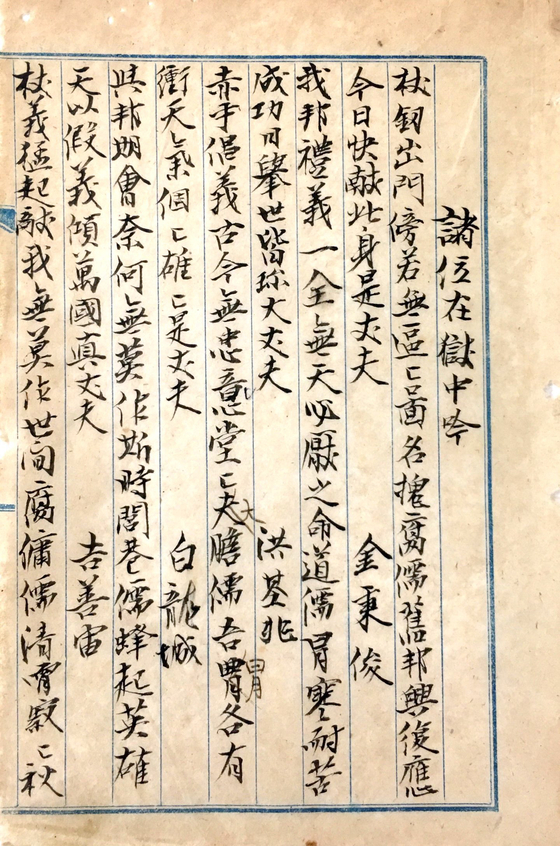 諸位在獄中吟
杖劒出門傍若無區〻啚名摠腐儒舊邦興復應
今日快献此身是丈夫 金秉俊
我邦禮義一全無天必厭之命道儒胃寒耐苦
成功日擧世皆称大丈夫 洪基兆
赤手倡義古今無忠意堂〻夫大膽儒吾胃各有胃
衝天氣個〻雄〻是丈夫 白龍城
與邦期會奈何無莫作斯時閭巷儒蜂起英雄
天以假義傾萬國真丈夫 吉善宙
杖義猛起敵我無莫作世间腐傭儒清宵寂〻秋